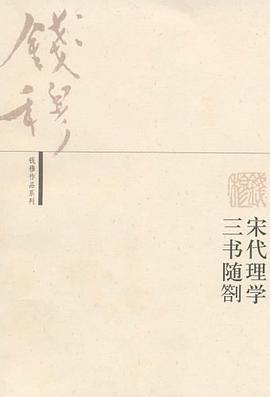 錢穆
钱穆作品系列
錢穆
宋代理学
三书随劄